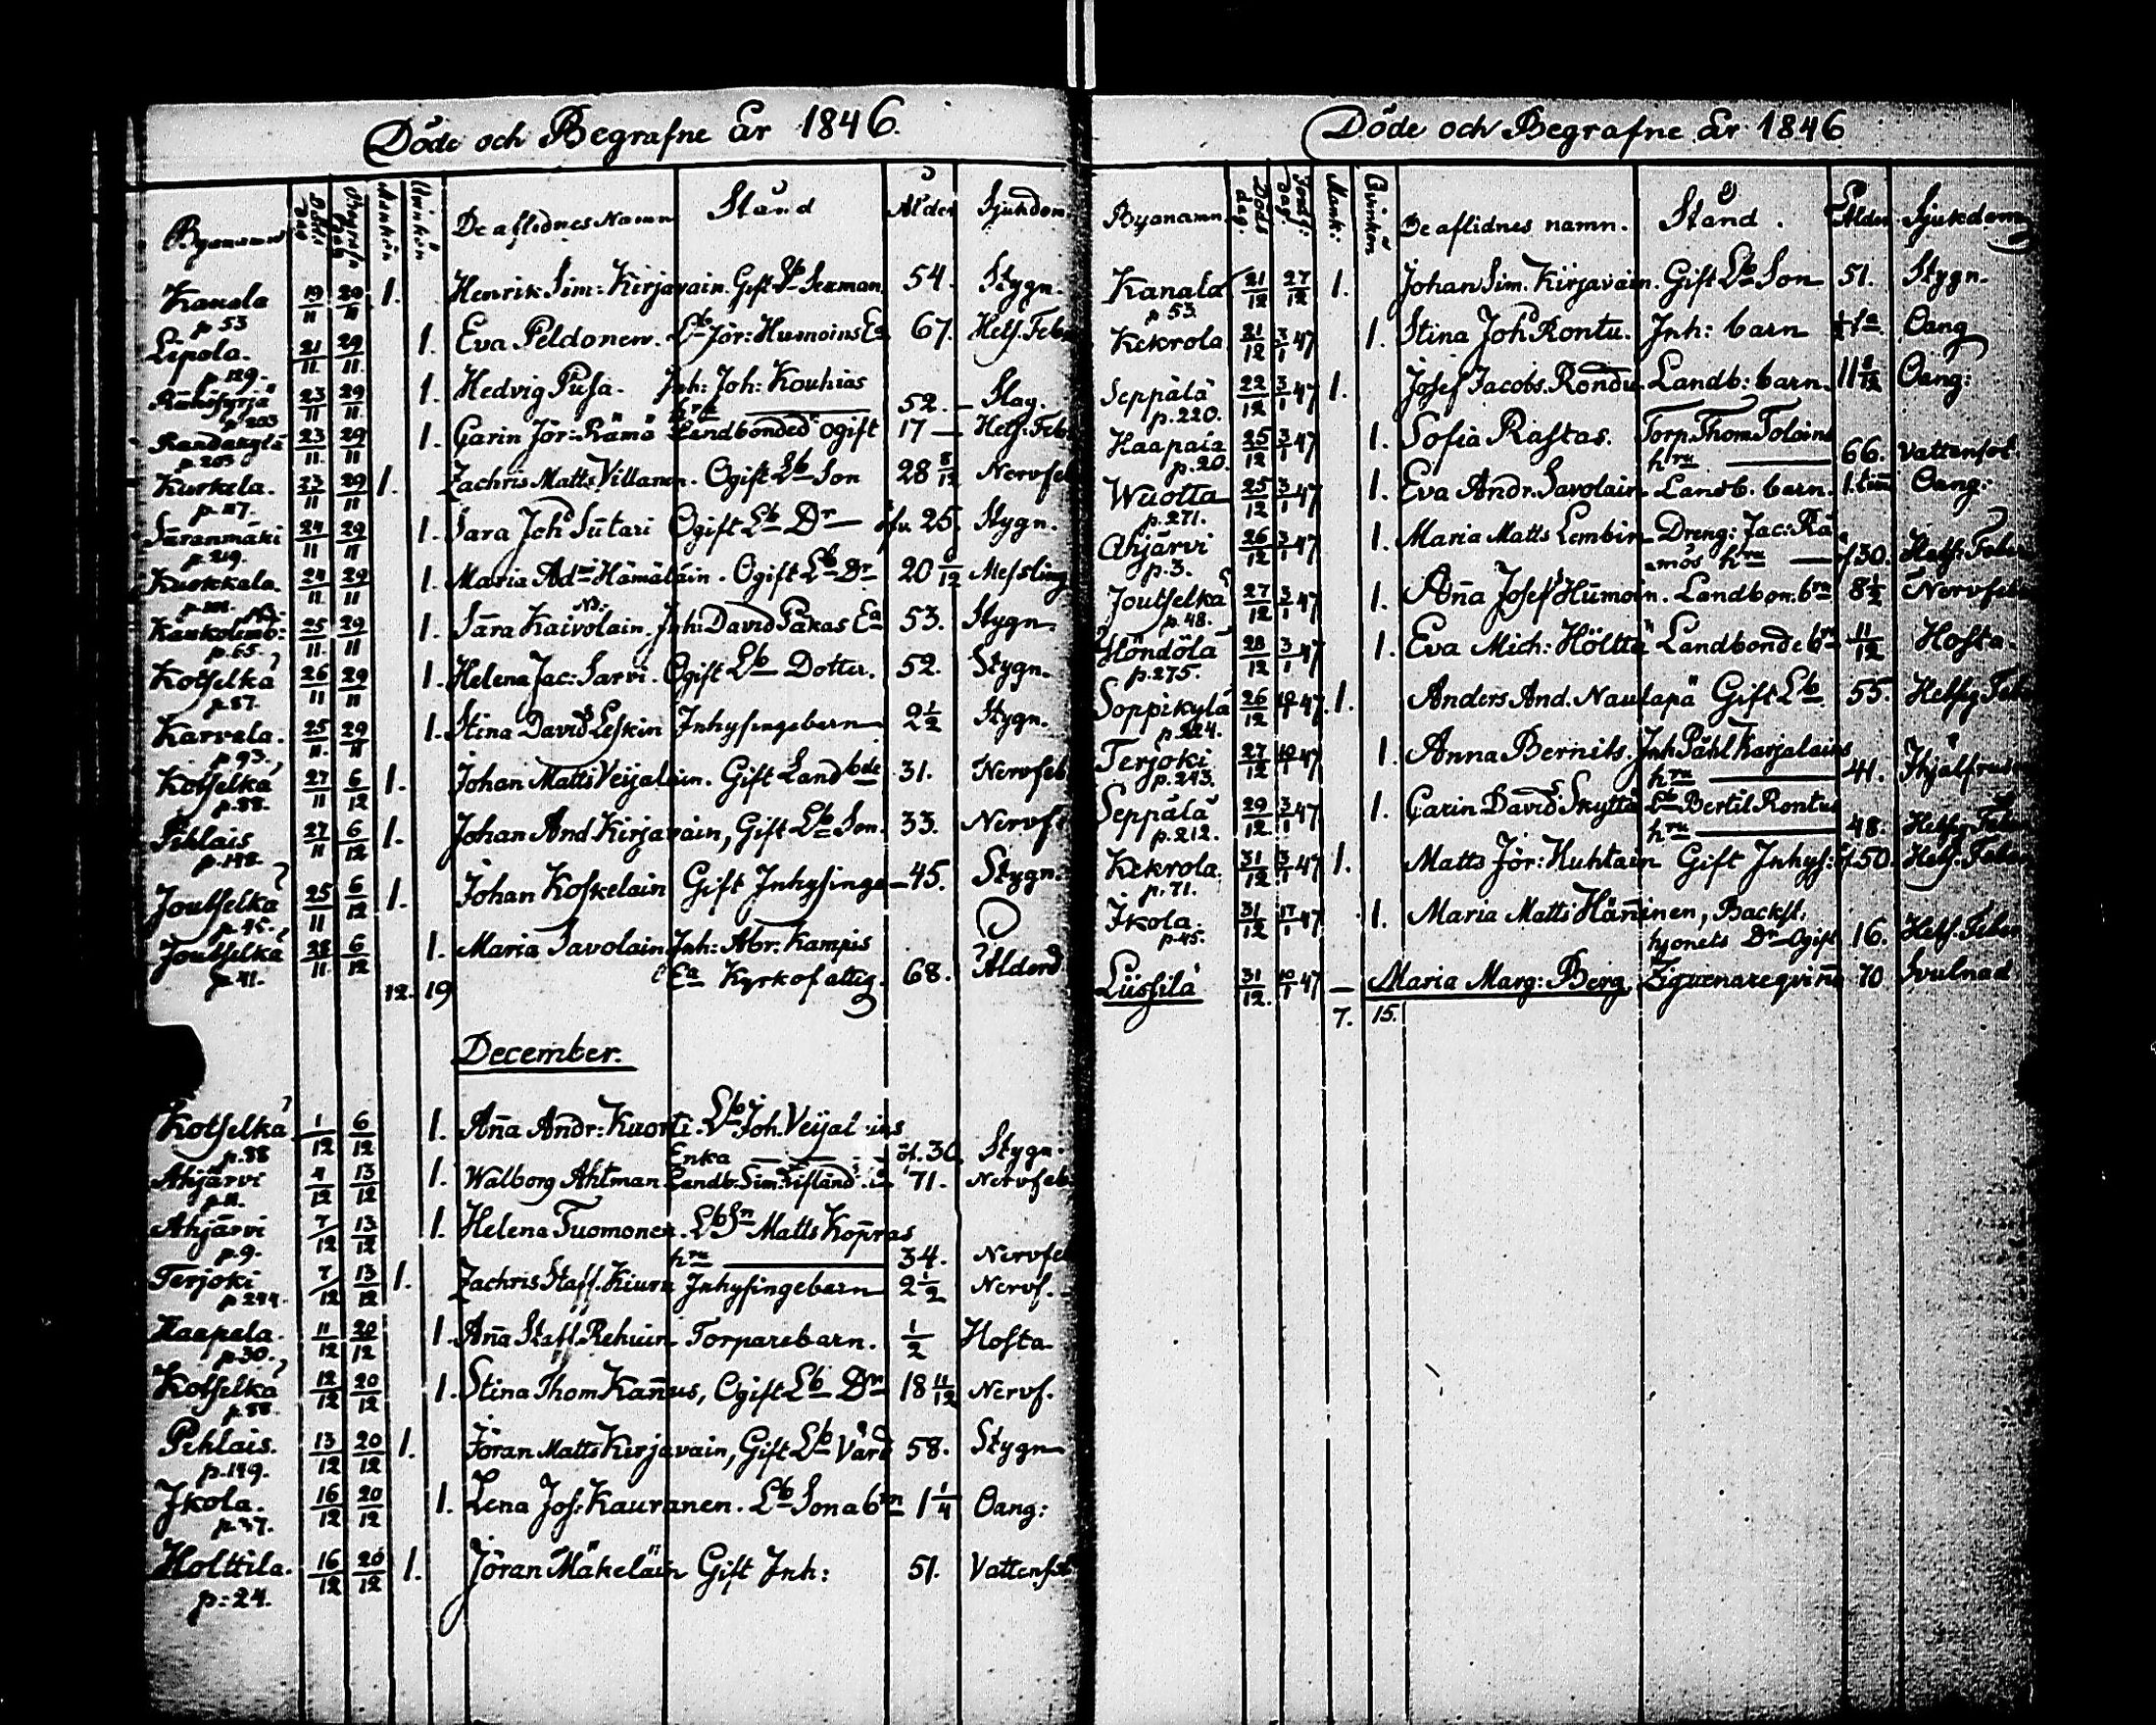 Döde och Begrafne År 1846.
Byanamn Döds dag Begrafn dag Mankön Qvinkön De aflidnes Namn Stånd Ålder Sjukdom
Kanala 19/11 29/11 1. Henrik Sim: Kirjavain. Gift Lb Sexman 54. Stygn.
p 53
Lepola. 21/11 29/11 1. Eva Peldonen. Lb Jör: Humoins Ea 67. Hets. Feb
p. 129.
23/11 29/11 1. Hedvig Pusa. Inh: Joh: Kouhias
p 203 hru 52. Slag.
Randakylä 23/11 29/11 1. Carin Jör: Rämö Landbonded ogift 17 Hets. Feb
p. 203
Kurkela. 23/11 29/11 1. Zachris Matts. Villanen. Ogift Lb Son 28 8/12 Nervfeb
p. 117.
Säranmäki 24/11 29/11 1. Sara Joh Sutari Ogift Lb Dr öfv. 25. Stygn.
p. 219.
Kurkkala. 24/11 29/11 1. Maria Ad Hämäläin. Ogift Lb Dr 20 6/12 Messling
Kaukolemb: 25/11 29/11 1. Sara Kaivolain. Inh: David Päkas Ea 53. Stygn.
p. 65.
Kotselkä 26/11 29/11 1. Helena Jac: Sarvi. Ogift Lb Dotter. 52. Stygn.
p. 87.
Karvala. 25/11 29/11 1. Stina David Leskin Inhysingebarn 2 1/2 Stygn.
p 93.
Kotselkä 27/11 6/12 1. Johan Matts Veijalain. Gift Landbde 31. Nervfeb
p. 88.
Pihlais 27/11 6/12 1. Johan And Kirjavain, Gift Lb Son. 33. Nervf
p. 148.
Joutselkä 25/11 6/12 1. Johan Koskelain Gift Inhysinge 45. Stygn.
p. 45.
Joutselkä 28/11 6/12 1. Maria Savolain Inh: Abr: Kampis
p. 41. Ea Kyrkofattig. 68. Ålderd
12. 19
December.
Kotselkä 1/12 6/12 1. Aña Andr: Kuorti. Lb Joh. Veijal ins
p. 88 Enka öf. 30. Stygn.
Ahjärvi 4/12 13/12 1. Walborg Ahtman Landb. Sim. 71. Nervfeb
p. 11.
Ahjärvi 7/12 13/12 1. Helena Tuomonen. Lb Sn Matts Kopras
p. 9. hru 34. Nervfeb
Terjoki 7/12 13/12 1. Zachris Staff. Kiuru Inhysingebarn 2 1/2 Nervf.
p 244.
Haapala. 11/12 20/12 1. Aña Staff. Rehuin Torparebarn. 1/2 Hosta.
p. 30.
Kotselkä 12/12 20/12 1. Stina Thom Kañus, Ogift Lb Dr 18 11/12 Nervf.
p. 88.
Pihlais. 13/12 20/12 1. Jöran Matts Kirjavain, Gift Lb Värd 58. Stygn
p. 149.
Ikola. 16/12 20/12 1. Lena Jos: Kauranen. Lb Sona brn 1 1/4 Oang:
p. 37.
Holttila. 16/12 20/12 1. Jöran Mäkeläin Gift Inh: 51. Vattensot
p: 24.
Döde och Begrafne År 1846
Byanamn. Döds dag. Jordf: Dag. Mank: Qvinkön De aflidnes namn. Stånd. Ålder Sjukdom
Kanala 21/12 27/12 1. Johan Sim. Kirjavain. Gift Lb Son 51. Stygn.
p 53.
Kekrola 21/12 3/1 47 1. Stina Joh Rontu. Inh: barn Oang
Seppälä 22/12 3/1 47 1. Josef Jacobs. Rondu Landb: barn. 11 8/12 Oang:
p. 220.
Haapala 25/12 3/1 47 1. Sofia Rastas. Torp. Thom Toloins
p. 20. hru 66. Vattensot.
Wuotta 25/12 3/1 47 1. Eva Andr. Savolain Landb. barn. 1. tim Oang:
p. 271.
Ahjärvi 26/12 3/1 47 1. Maria Matts Lembin Dreng: Jac: Rä
p. 3. mös hru öf 30. Hets: Feber
Joutselkä 27/12 3/1 47 1. Aña Josef Humoin. Landbon. brn 8 1/2 Nervfeb
p. 48.
Höndölä 28/12 3/1 47 1. Eva Mich: Hölttä Landbonde brn 11/12 Hosta.
p. 275.
Soppikylä 26/12 10/1 47 1. Anders And. Naulapä Gift Lb 55. Hetsg Feb
p. 224.
Terjoki 27/12 10/1 47 1. Anna Bernits. Inh Påhl Karjalains
p. 243. hru 41. Ihjälfrus
Seppälä 29/12. 3/1 47 1. Carin David Skyttä Lb Bertil Rontus
p. 212. hru 48. Hetsg. Feber
Kekrola. 31/12 3/1 47 1. Matts Jör: Huhtain Gift Inhys: öf. 50. Hets. Feber
p. 71.
Ikola. 31/12 17/1 47 1. Maria Matts Häninen, Backst.
p. 45. hjonets Dr Ogift 16. Hets. Feber
Liissilä 31/12. 10/1 47 — Maria Marg: Berg. Ziguenareqvina 70 Svulnad
7. 15.